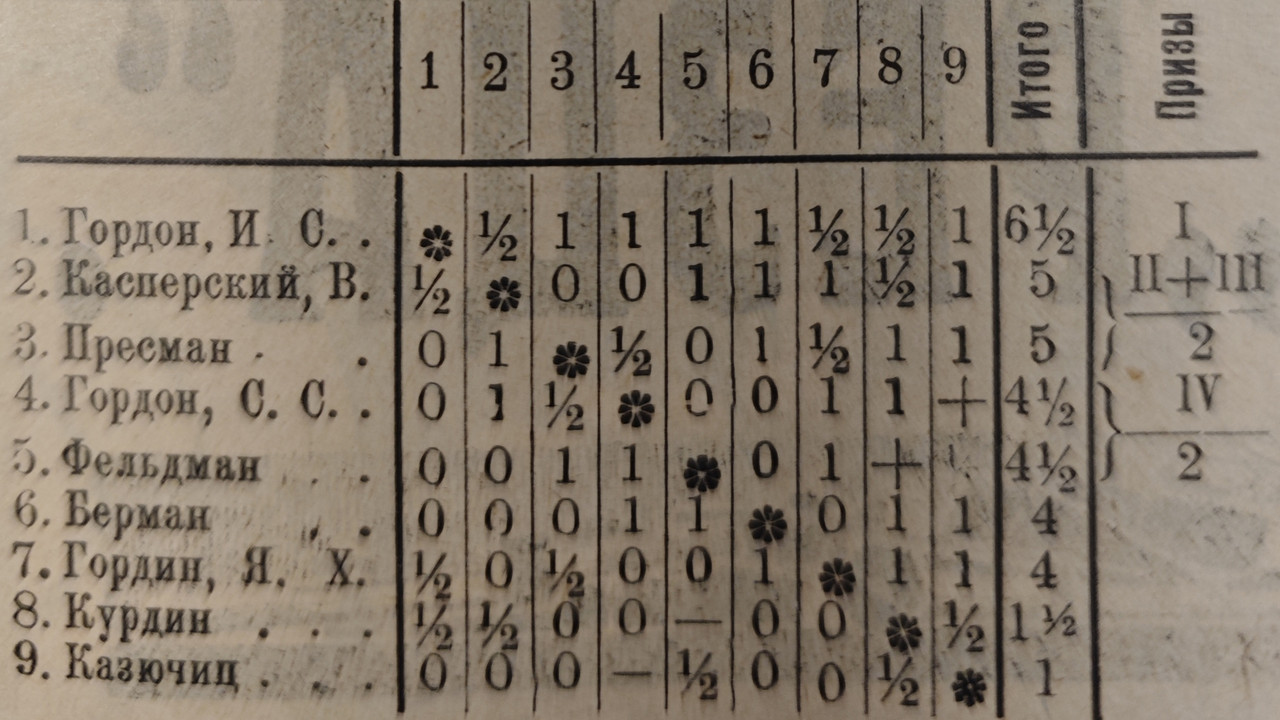 1 2 3 4 5 6 7 8 9 Итого Призы
1. Гордон, И. С. . * ½ 1 1 1 1 ½ ½ 1 6½ I
2. Касперский, В. ½ * 0 0 1 1 1 ½ 1 5 II+III
3. Пресман . . 0 1 * ½ 0 1 ½ 1 1 5 2
4. Гордон, С. С. . 0 1 ½ * 0 0 1 1 + 4½ IV
5. Фельдман . . 0 0 1 1 * 0 1 + 4½ 2
6. Берман . . 0 0 0 1 1 * 0 1 1 4
7. Гордин, Я. Х. ½ 0 ½ 0 0 1 * 1 1 4
8. Курдин . . . ½ ½ 0 0 — 0 0 * ½ 1½
9. Казючиц . . . 0 0 0 — ½ 0 0 ½ * 1